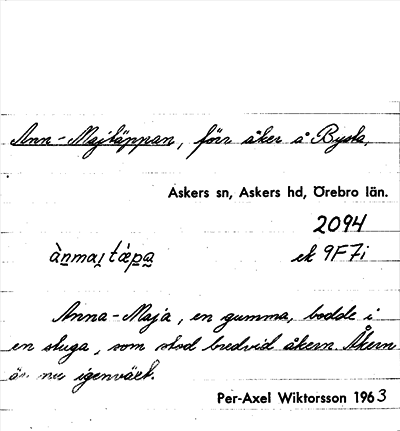 Ann-Majtäppan, förr åker å Bysta,
Askers sn, Askers hd, Örebro län.
2094
ànmai̯ tǽpa ek 9F7i
Anna-Maja, en gumma, bodde i
en stuga, som stod bredvid åkern. Åkern
är nu igenväxt.
Per-Axel Wiktorsson 1963